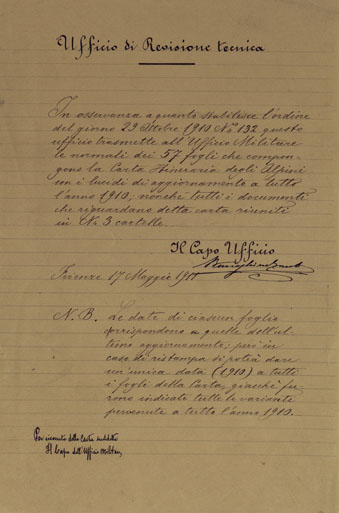 Ufficio di Revisione tecnica
In osservanza a quanto stabilisce l'ordine
del giorno 29 Ottobre 1910 No 132 questo
ufficio trasmette all'Ufficio Militare
le normali dei 57 fogli che compon-
gono la Carta Itineraria degli Alpini
con i lucidi di aggiornamento a tutto
l'anno 1910; nonchè tutti i documenti
che riguardano detta carta riuniti
in No 3 cartelle.
Il Capo Ufficio
Firenze 17 Maggio 1911
N.B. Le date di ciascun foglio
corrispondono a quelle dell'ul-
timo aggiornamento; però in
caso di ristampa si potrà dare
un'unica data (1910) a tutti
i fogli della Carta, giacchè fu-
rono indicate tutte le varianti
pervenute a tutto l'anno 1910.
Per ricevuta della Carta suddetta
Il Capo dell'Ufficio Militare